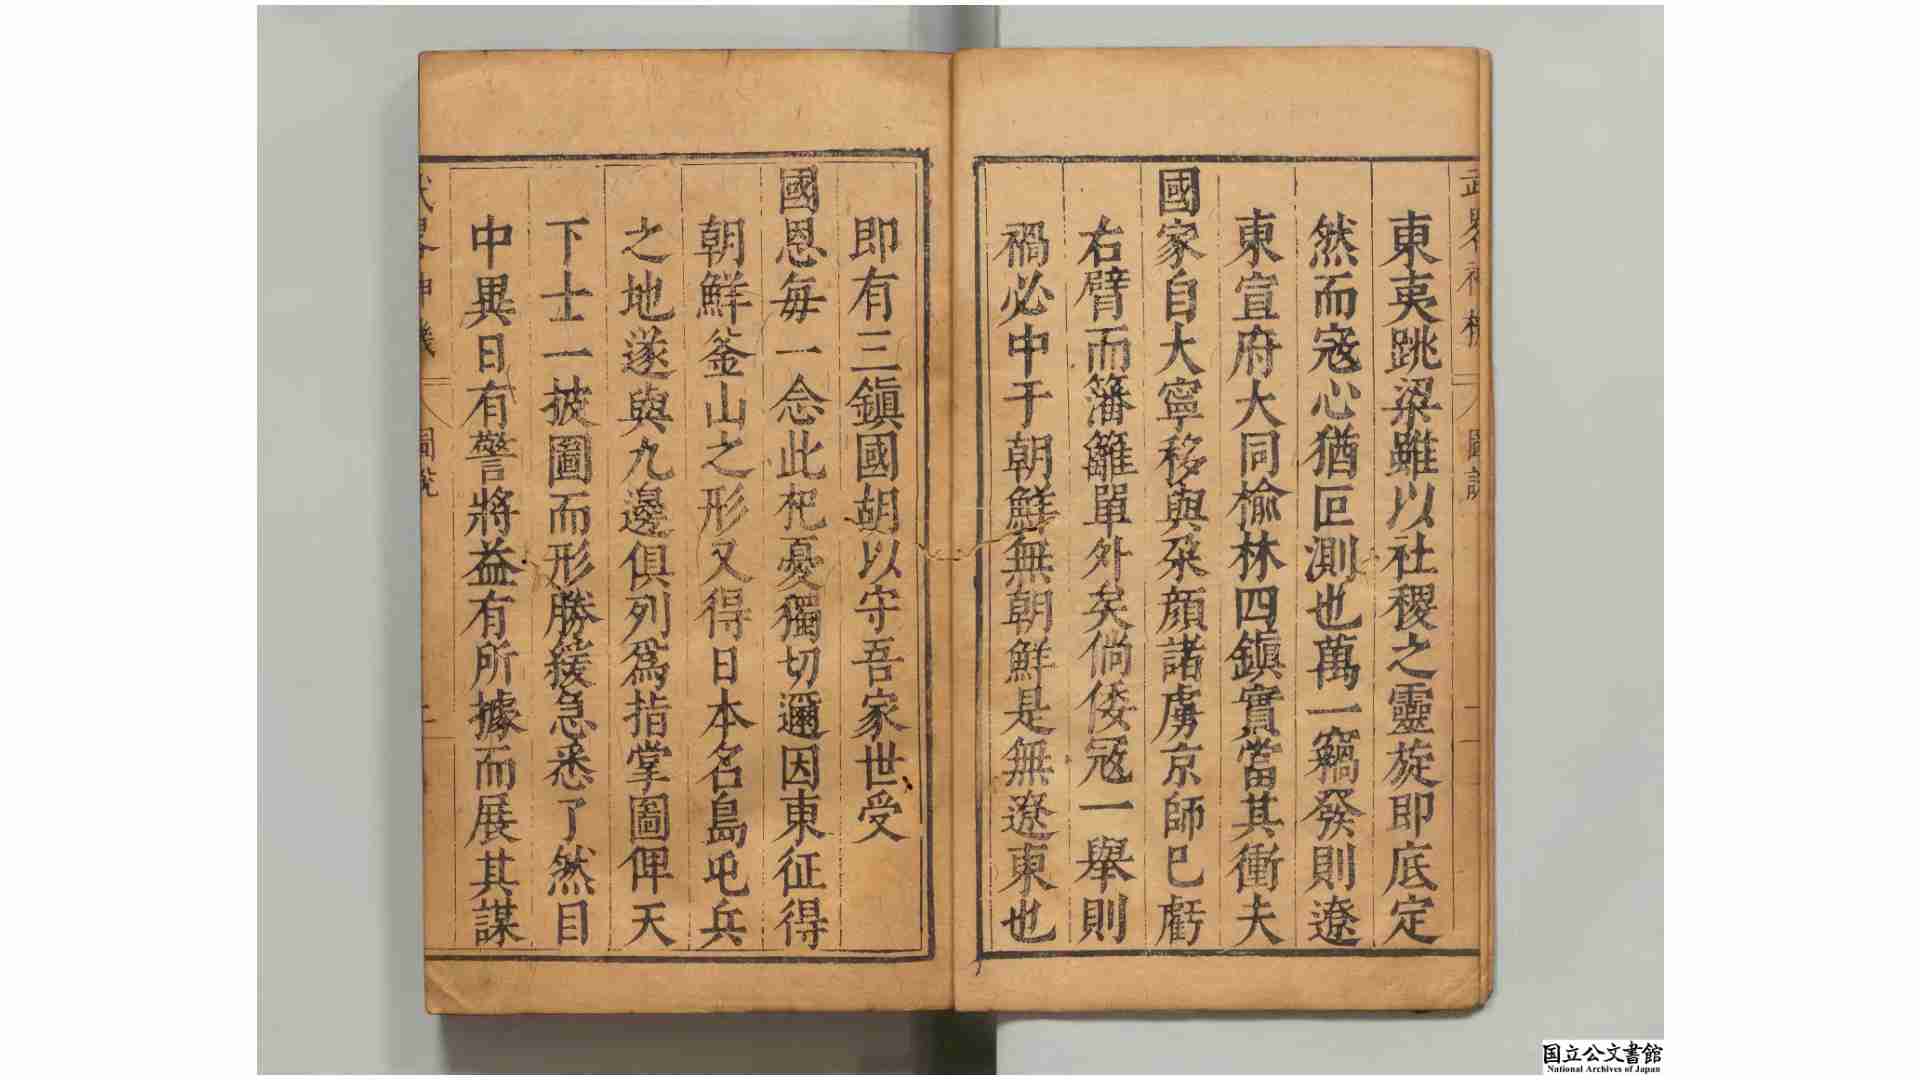 武畧神機
圖說
東夷跳梁雖以社稷之靈旋即底定
然而寇心猶叵測也萬一竊發則遼
東宣府大同榆林四鎮實當其衝夫
國家自大寧移與朶顏諸虜京師已虧
右臂而籓籬單外矣倘倭寇一舉則
禍必中于朝鮮無朝鮮是無遼東也
即有三鎮國胡以守吾家世受
國恩每一念此杞憂獨切邇因東征得
朝鮮釜山之形又得日本名島屯兵
之地遂與九邊俱列爲指掌圖俾天
下士一披圖而形勝緩急悉了然目
中異日有警將益有所據而展其謀
武畧神機
圖說
国立公文書館
National Archives of Japan